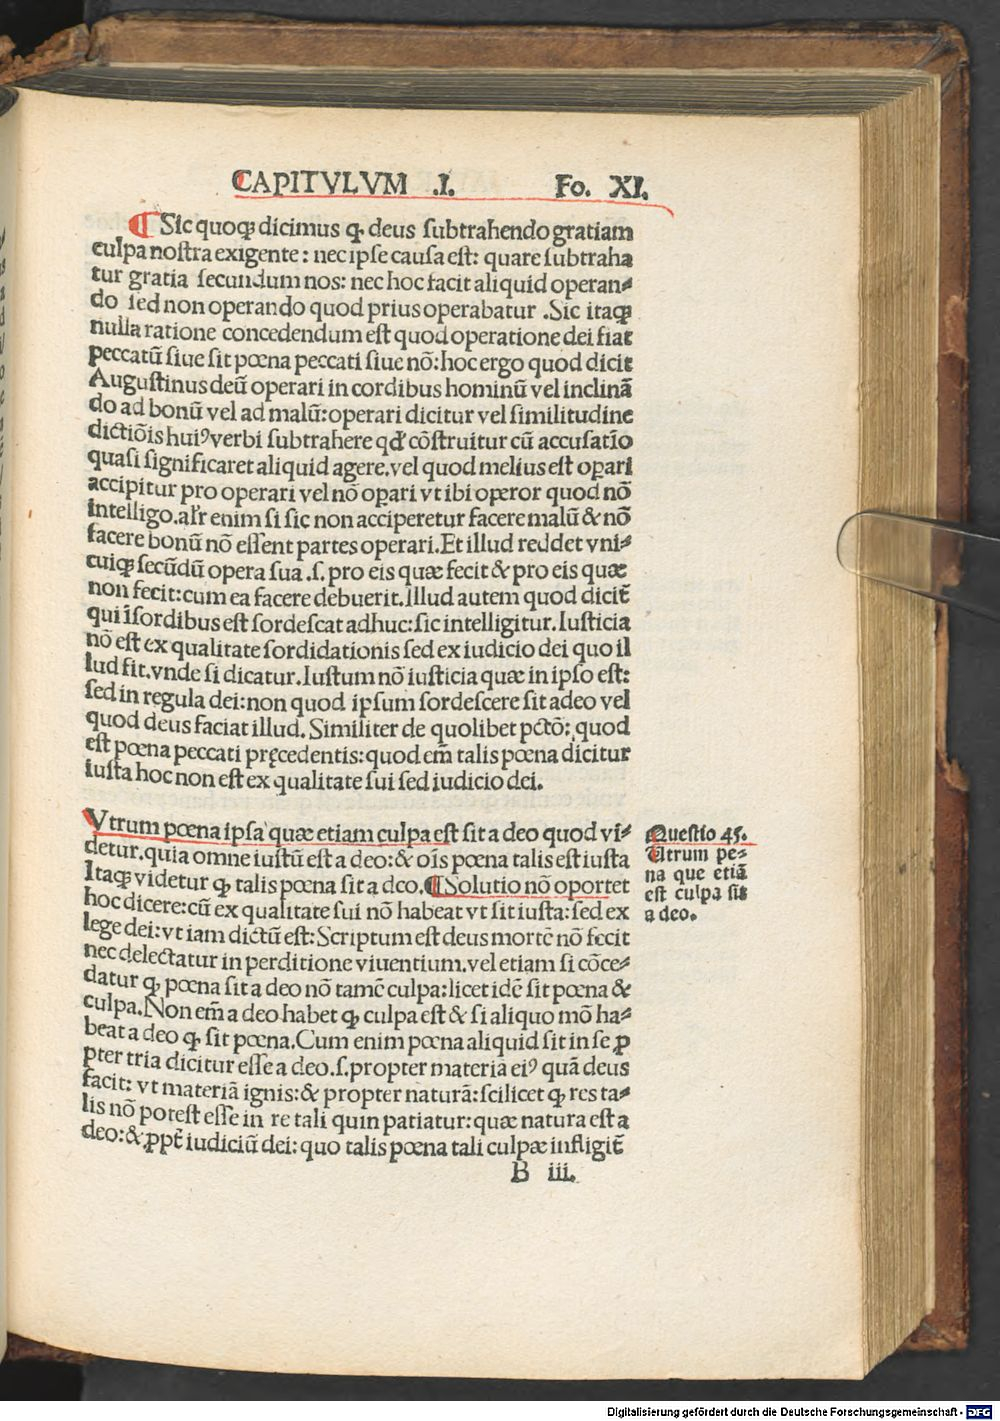 CAPITVLVM .I. Fo. XI.
¶ Sic quoqꝫ dicimus ꝙ deus ſubtrahendo gratiam
culpa noſtra exigente: nec ipſe cauſa eſt: quare ſubtraha
tur gratia ſecundum nos: nec hoc facit aliquid operan⸗
do ſed non operando quod prius operabatur .Sic itaqꝫ
nulla ratione concedendum eſt quod operatione dei fiat
peccatū ſiue ſit pœna peccati ſiue nō: hoc ergo quod dicit
Auguſtinus deū operari in cordibus hominū vel inclinā
do ad bonū vel ad malū: operari dicitur vel ſimilitudine
dictiōis huiꝰ verbi ſubtrahere qđ cōſtruitur cū accuſatīo
quaſi ſignificaret aliquid agere.vel quod melius eſt oꝑari
accipitur pro operari vel nō oꝑari vt ibi operor quod nō
intelligo.alr̄ enim ſi ſic non acciperetur facere malū & nō
facere bonū nō eſſent partes operari.Et illud reddet vni⸗
cuiqꝫ ſecūdū opera ſua .ſ. pro eis quæ fecit & pro eis quæ
non fecit: cum ea facere debuerit.Illud autem quod dicit̄
qui ī ſordibus eſt ſordeſcat adhuc: ſic intelligitur.Iuſticia
nō eſt ex qualitate ſordidationis ſed ex iudicio dei quo il
lud fit.vnde ſi dicatur.Iuſtum nō iuſticia quæ in ipſo eſt:
ſed in regula dei: non quod ipſum ſordeſcere ſit a deo vel
quod deus faciat illud. Similiter de quolibet pctō: quod
eſt pœna peccati pręcedentis: quod em̄ talis pœna dicitur
iuſta hoc non eſt ex qualitate ſui ſed iudicio dei.
Vtrum pœna ipſa quæ etiam culpa eſt ſit a deo quod vi⸗
detur.quia omne iuſtū eſt a deo: & oīs pœna talis eſt iuſta
Itaqꝫ videtur ꝙ talis pœna ſit a deo. ¶ Solutio nō oportet
hoc dicere: cū ex qualitate ſui nō habeat vt ſit iuſta: ſed ex
lege dei: vt iam dictū eſt: Scriptum eſt deus mortē nō fecit
nec delectatur in perditione viuentium.vel etiam ſi cōce⸗
datur ꝙ pœna ſit a deo nō tamē culpa: licet idē ſit pœna &
culpa.Non em̄ a deo habet ꝙ culpa eſt & ſi aliquo mō ha⸗
beat a deo ꝙ ſit pœna.Cum enim pœna aliquid ſit in ſe ꝓ
pter tria dicitur eſſe a deo.ſ.propter materiā eiꝰ quā deus
facit: vt materiā ignis: & propter naturā: ſcilicet ꝙ res ta⸗
lis nō poteſt eſſe in re tali quin patiatur: quæ natura eſt a
deo: & ꝓpt̄ iudiciū dei: quo talis pœna tali culpæ infligit̄
B iii.
Queſtio 45.
Utrum pe⸗
na que etiā
eſt culpa ſit
a deo.
Digitalisierung gefördert durch die Deutsche Forschungsgemeinschaft - DFG